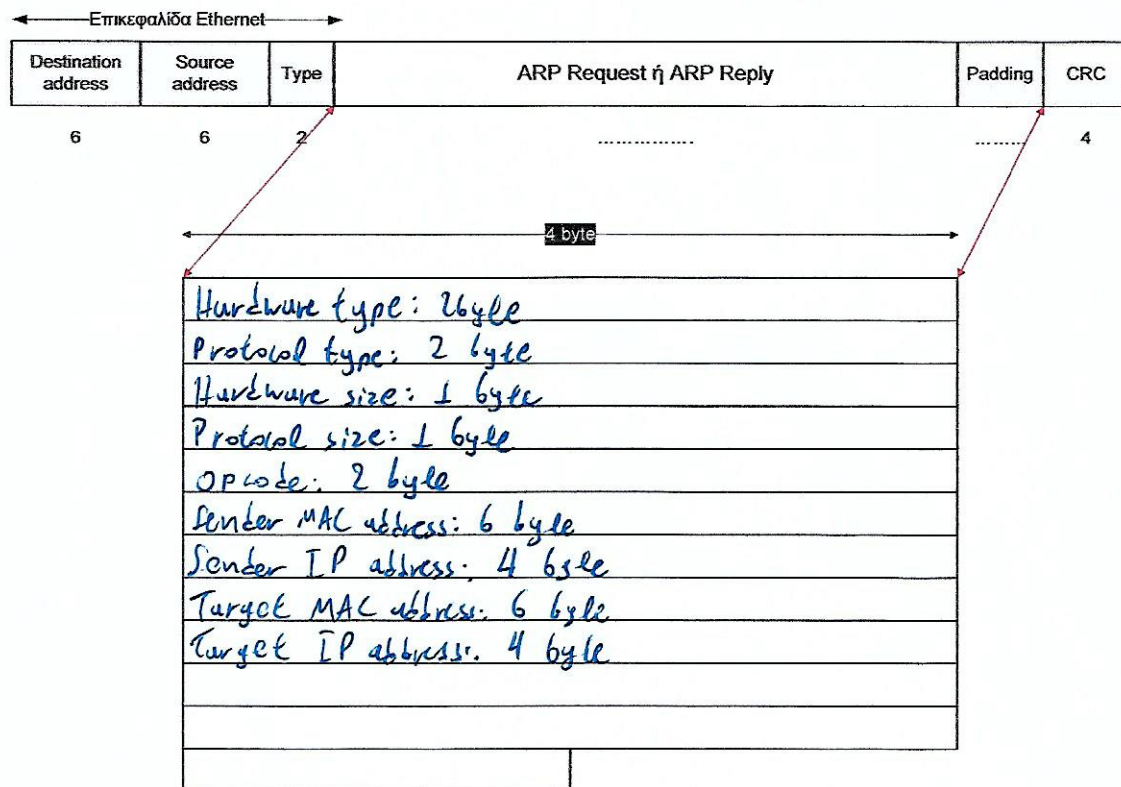 Επικεφαλίδα Ethernet
Destination address
Source address
Type
ARP Request ή ARP Reply
Padding
CRC
6
6
2
................
.........
4
4 byte
Hardware type: 2byte
Protocol type: 2 byte
Hardware size: 1 byte
Protocol size: 1 byte
opcode: 2 byte
Sender MAC address: 6 byte
Sender IP address: 4 byte
Target MAC address: 6 byte
Target IP address: 4 byte